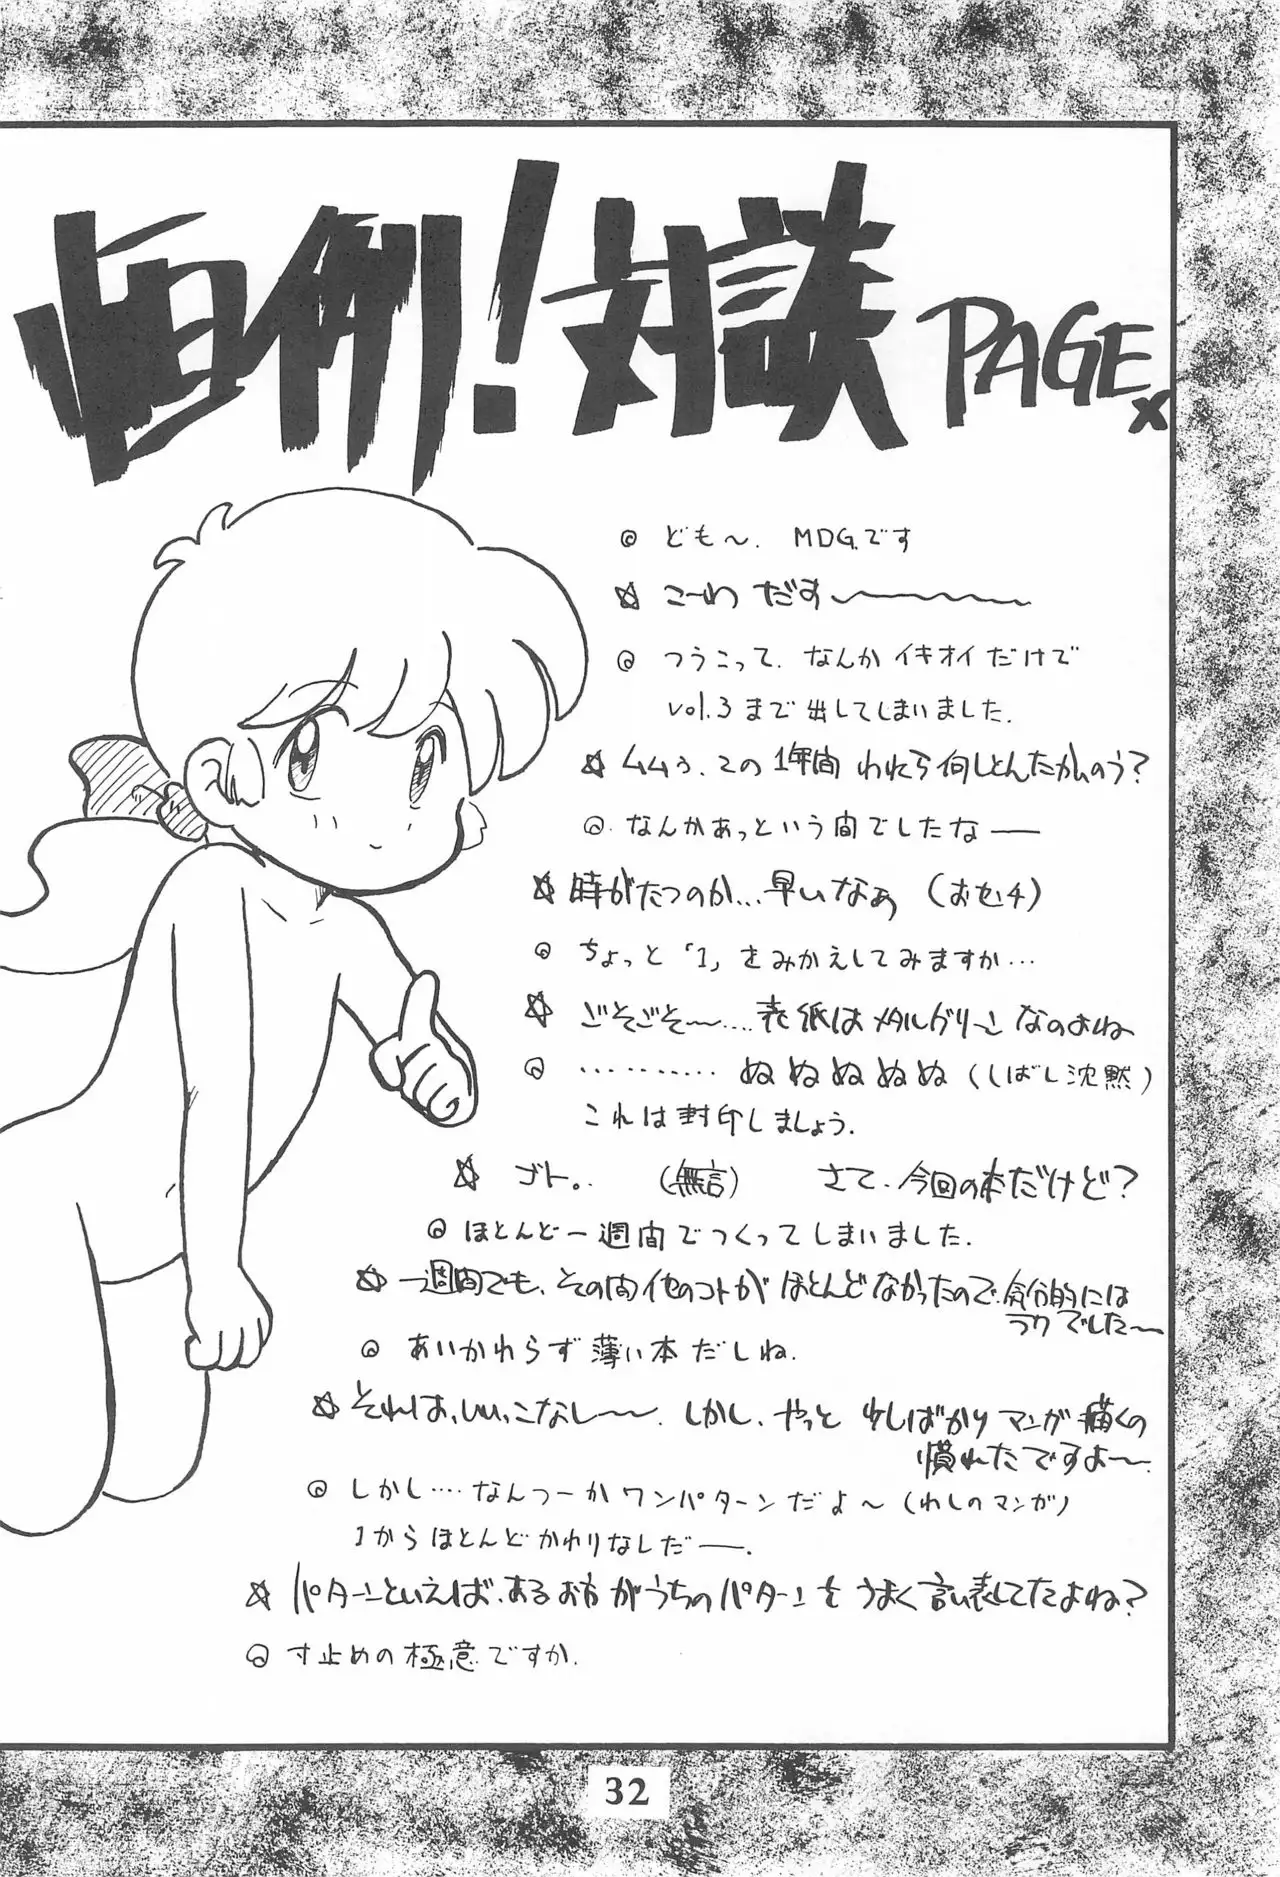 恒例!対談 PAGE
◎ ども〜. MDG.です
☆ こーわ だす〜
◎ つうこって. なんか イキオイ だけで
vol.3 まで 出してしまいました.
☆ ムムぅ. この 1年間 われら何しとんたかのう?
◎. なんかあっという間でしたな—
☆ 時がたつのか... 早いなぁ (おセンチ)
◎ ちょっと「1」をみかえしてみますか...
☆ ごそごそ〜.... 表紙は メタルグリーン なのよね
◎ .......... ぬぬぬぬぬ (しばし沈黙)
これは封印しましょう.
☆ ゴト.. (無言) さて. 今回の本だけど?
◎ ほとんど一週間でつくってしまいました.
☆ 一週間でも. その間他のコトが ほとんどなかったので. 気分的には
ラクでした〜
◎ あいかわらず 薄い本 だしね.
☆ それは. いいっこなし〜. しかし. やっと 少しばかり マンガ 描くの
慣れたですよ〜.
◎ しかし.... なんつーか ワンパターンだよ〜 (わしのマンガ)
1からほとんどかわりなしだ—.
☆ パターンといえば. あるお方がうちのパターンを うまく言い表してたよね?
◎ 寸止めの極意ですか.
32